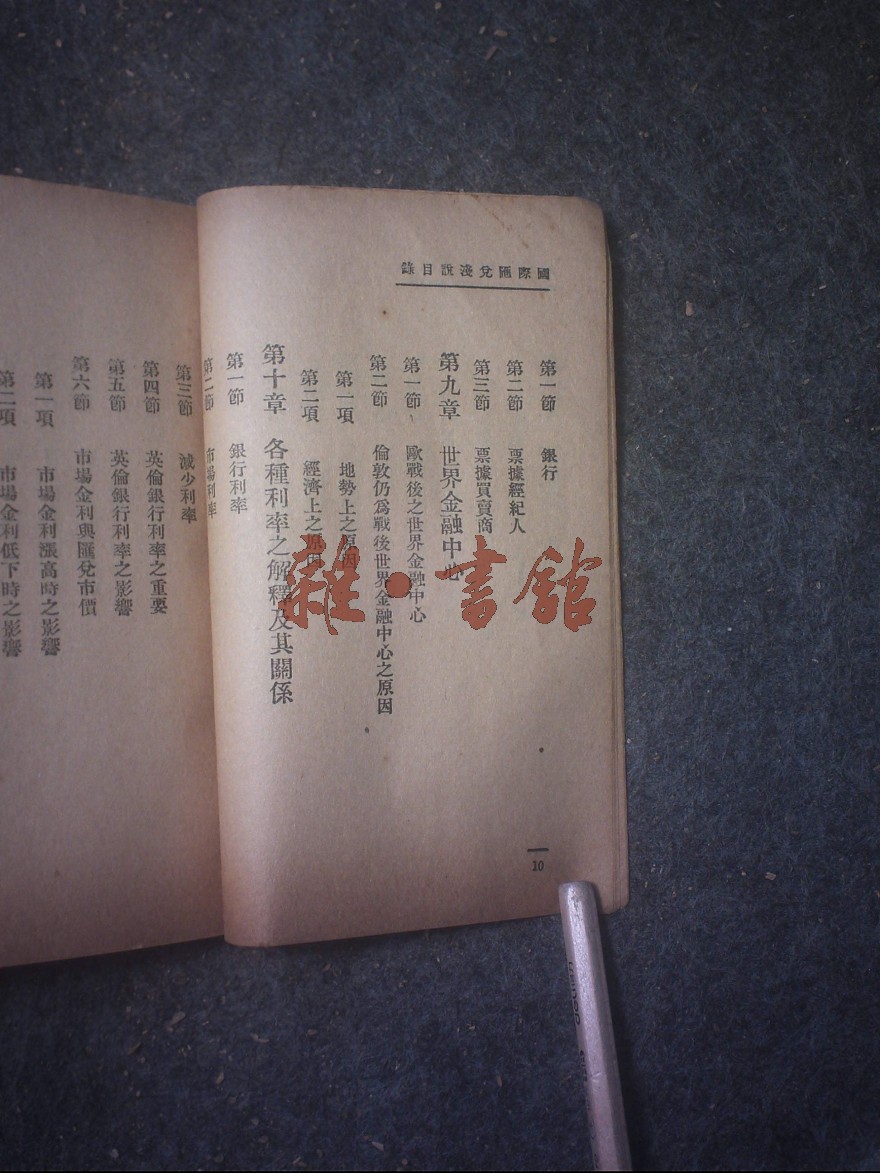 國際匯兌淺說目錄
第一節 銀行
第二節 票據經紀人
第三節 票據買賣商
第九章 世界金融中心
第一節 歐戰後之世界金融中心
第二節 倫敦仍為戰後世界金融中心之原因
第一項 地勢上之原因
第二項 經濟上之原因
第十章 各種利率之解釋及其關係
第一節 銀行利率
第二節 市場利率
10
第三節 減少利率
第四節 英倫銀行利率之重要
第五節 英倫銀行利率之影響
第六節 市場金利與匯兌市價
第一項 市場金利漲高時之影響
第二項 市場金利低下時之影響
雜·書館